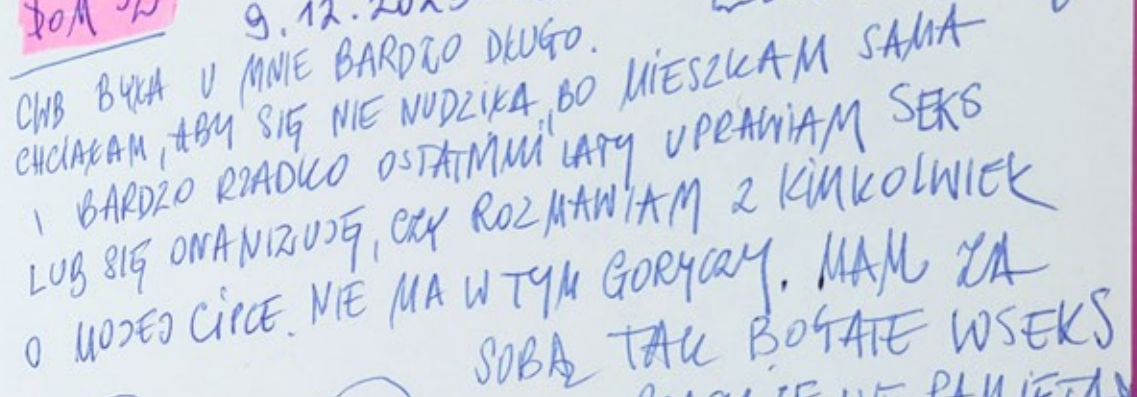 DOM
9.12.2023
CWB BYŁA U MNIE BARDZO DŁUGO.
CHCIAŁAM, ABY SIĘ NIE NUDZIŁA, BO MIESZKAM SAMA
I BARDZO RZADKO OSTATNIMI LATY UPRAWIAM SEKS
LUB SIĘ ONANIZUJĘ, CZY ROZMAWIAM Z KIMKOLWIEK
O MOJEJ CIPCE. NIE MA W TYM GORYCZY. MAM ZA
SOBĄ TAK BOGATE W SEKS
ŻE NIE PAMIĘTAM